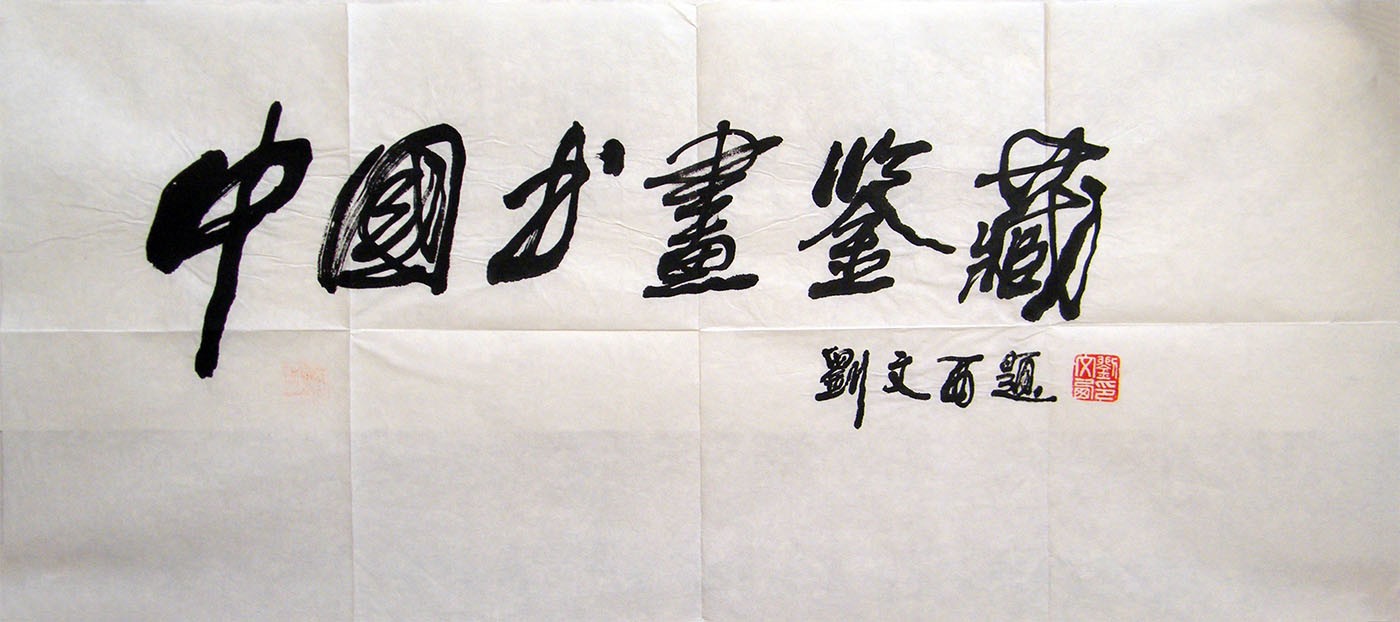 中國书畫鉴藏
劉文西題
劉文西印